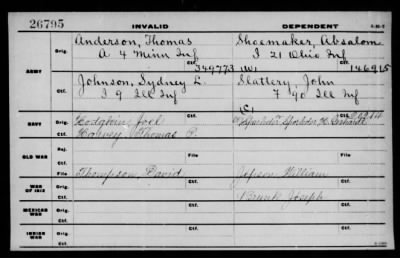 26795 INVALID DEPENDENT
ARMY
Orig. Anderson, Thomas Shoemaker, Absalom
A 4 Minn Inf I 21 Ohio Inf
Ctf. 349773 (W) 146915
Orig. Johnson, Sydney L. Slattery, John
I 9 Ill Inf 7 90 Ill Inf
Ctf. (C)
NAVY
Orig. Hodgkin, Joel
Ctf. Harvey, Thomas P.
OLD WAR
Rej.
Ctf. File File
WAR OF 1812
Orig. Thompson, David Jepson William
Ctf. Brunk Joseph
MEXICAN WAR
Orig.
Ctf.
INDIAN WAR
Orig.
Ctf.